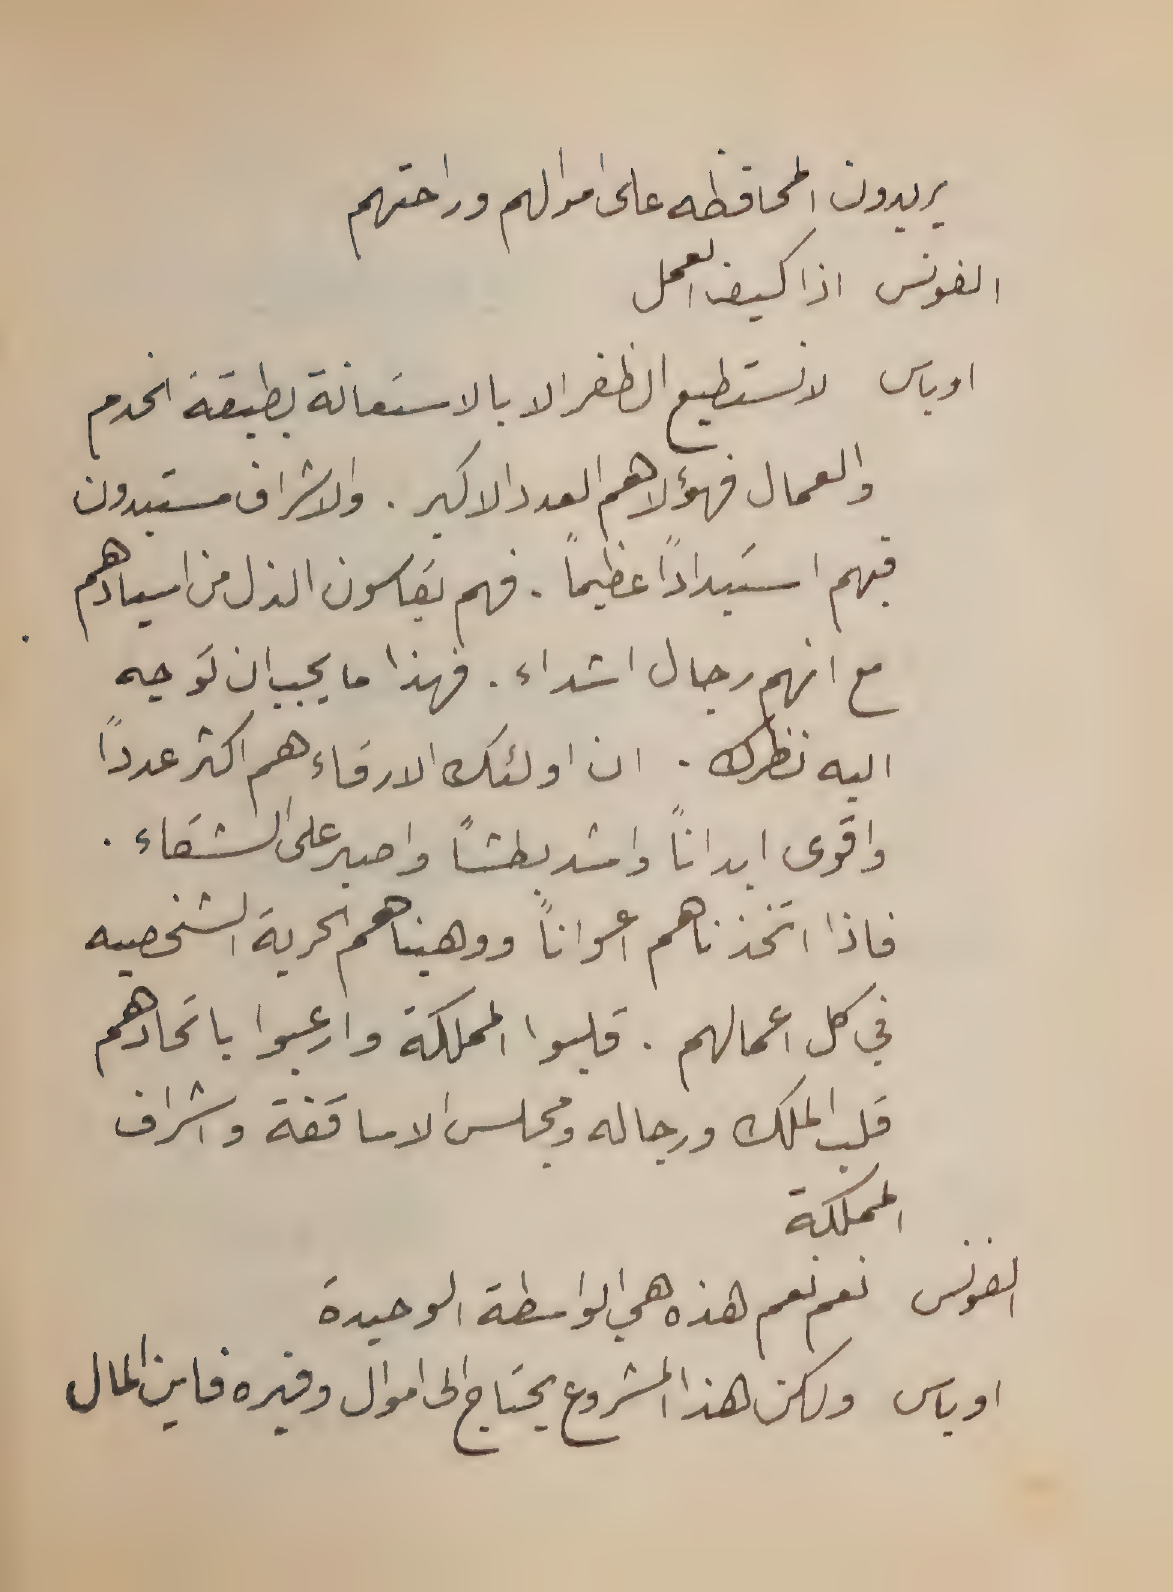 يريدون المحافظه على اموالهم وراحتهم
الفونس اذا كيف العمل
اوباس لا نستطيع الظفر الا بالاستعانة بطبقة الخدم
والعمال فهؤلاهم العدد الاكبر . والاشراف مستبدون
فيهم استبداداً عظيماً . فهم يقاسون الذل من اسيادهم
مع انهم رجال اشداء . فهذا ما يجب ان توجه
اليه نظرك . ان اولئك الارقاء هم اكثر عدداً
واقوى ابداناً واشد بطشاً واصبر على الشقاء .
فاذا اتخذناهم اعواناً ووهبناهم الحرية الشخصيه
في كل اعمالهم . قلبوا المملكة وارعبوا باتحادهم
قلب الملك ورجاله ومجلس الاساقفة واشراف
المملكة
الفونس نعم نعم هذه هي الواسطة الوحيدة
اوباس ولكن هذا المشروع يحتاج الى اموال وفيره فاين المال